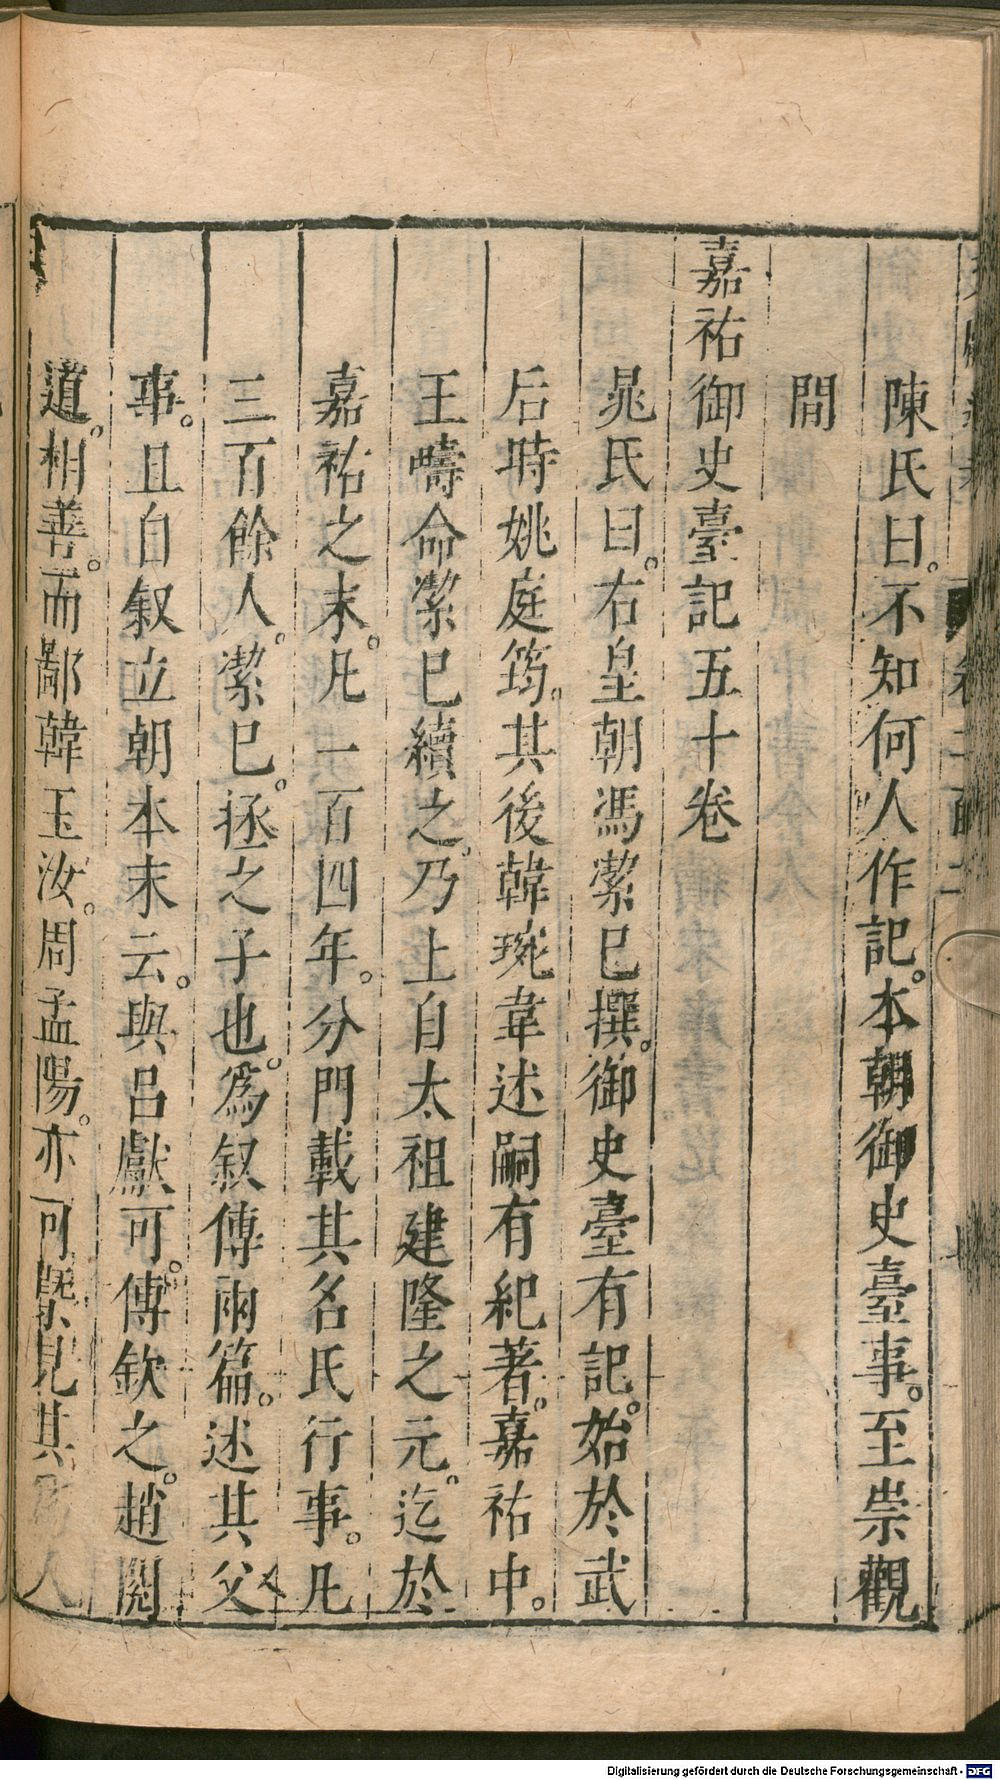 陳氏曰。不知何人作記。本朝御史臺事。至崇觀
間
嘉祐御史臺記五十卷
晁氏曰。右皇朝馮潔已撰。御史臺有記。始於武
后時姚庭筠。其後韓琬韋述嗣有紀著。嘉祐中。
王疇命潔已續之。乃上自太祖建隆之元。迄於
嘉祐之末。凡一百四年。分門載其名氏行事。凡
三百餘人。潔已。拯之子也。爲叙傳兩篇。述其父
事。且自叙立朝本末云。與呂獻可。傅欽之。趙閱
道。相善。而鄙韓玉汝。周孟陽。亦可槩見其人
Digitalisierung gefördert durch die Deutsche Forschungsgemeinschaft - DFG